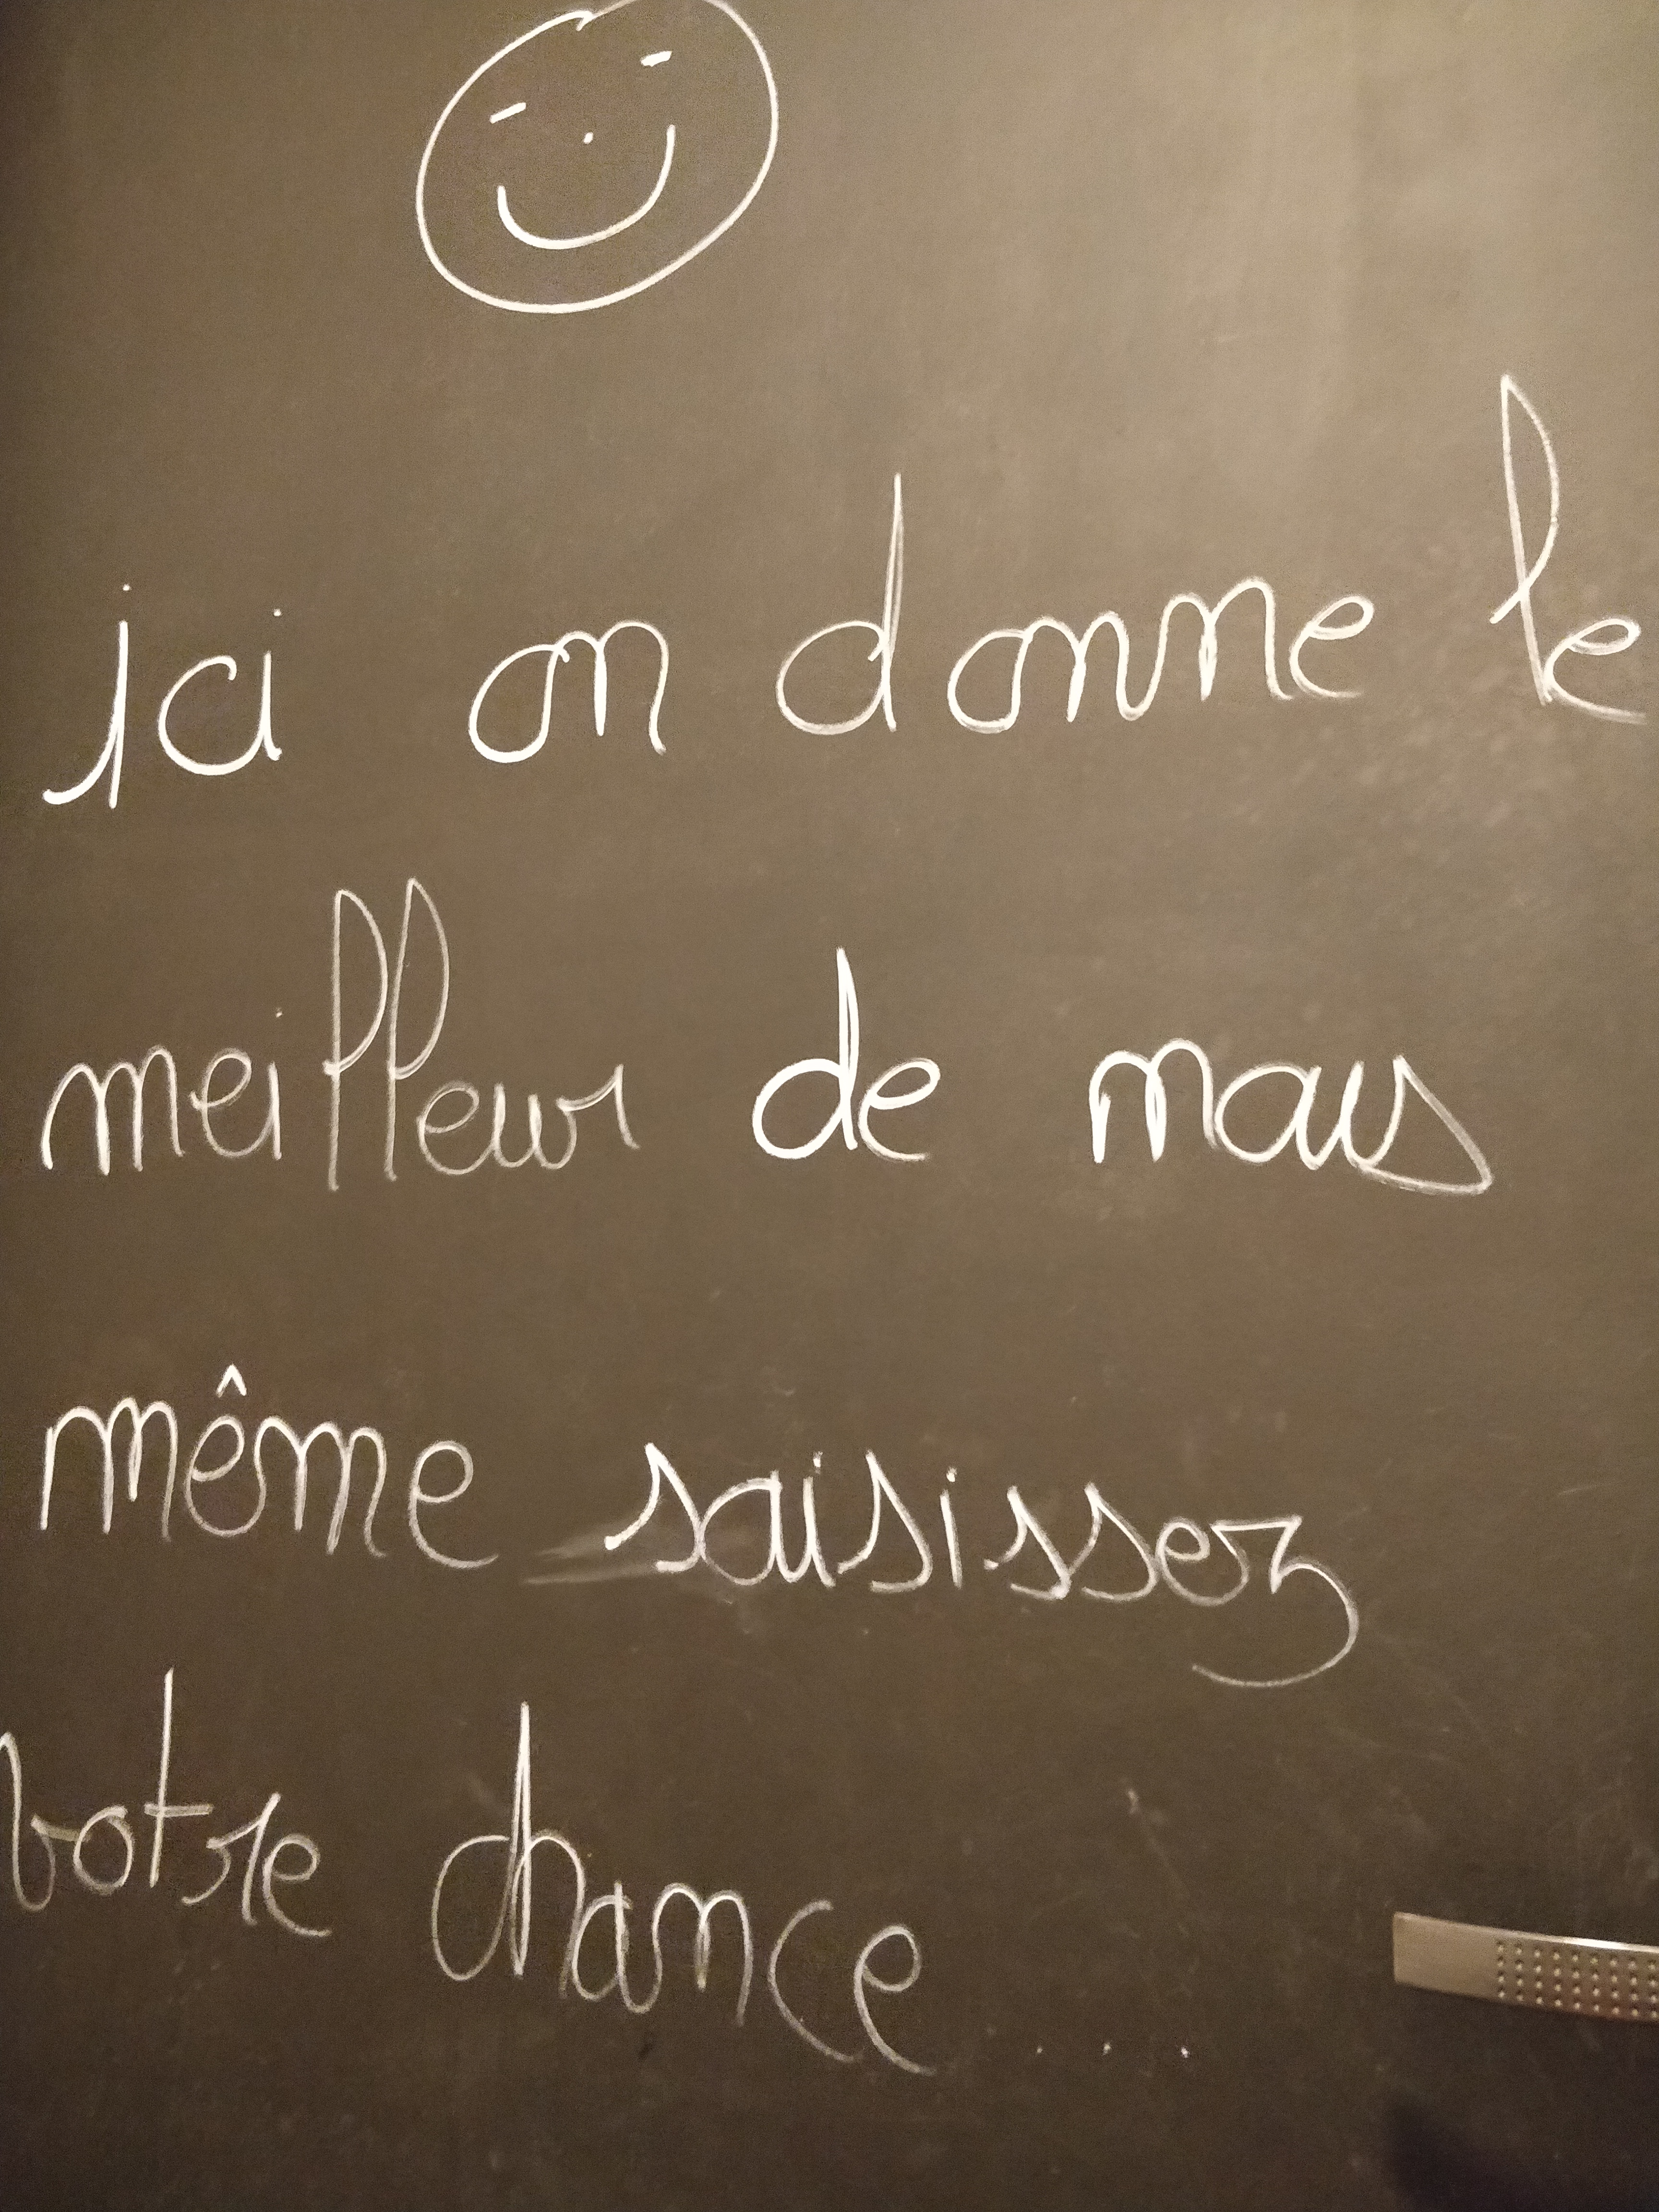 ici on donne le
meilleur de nous
même saisissez
votre chance ...